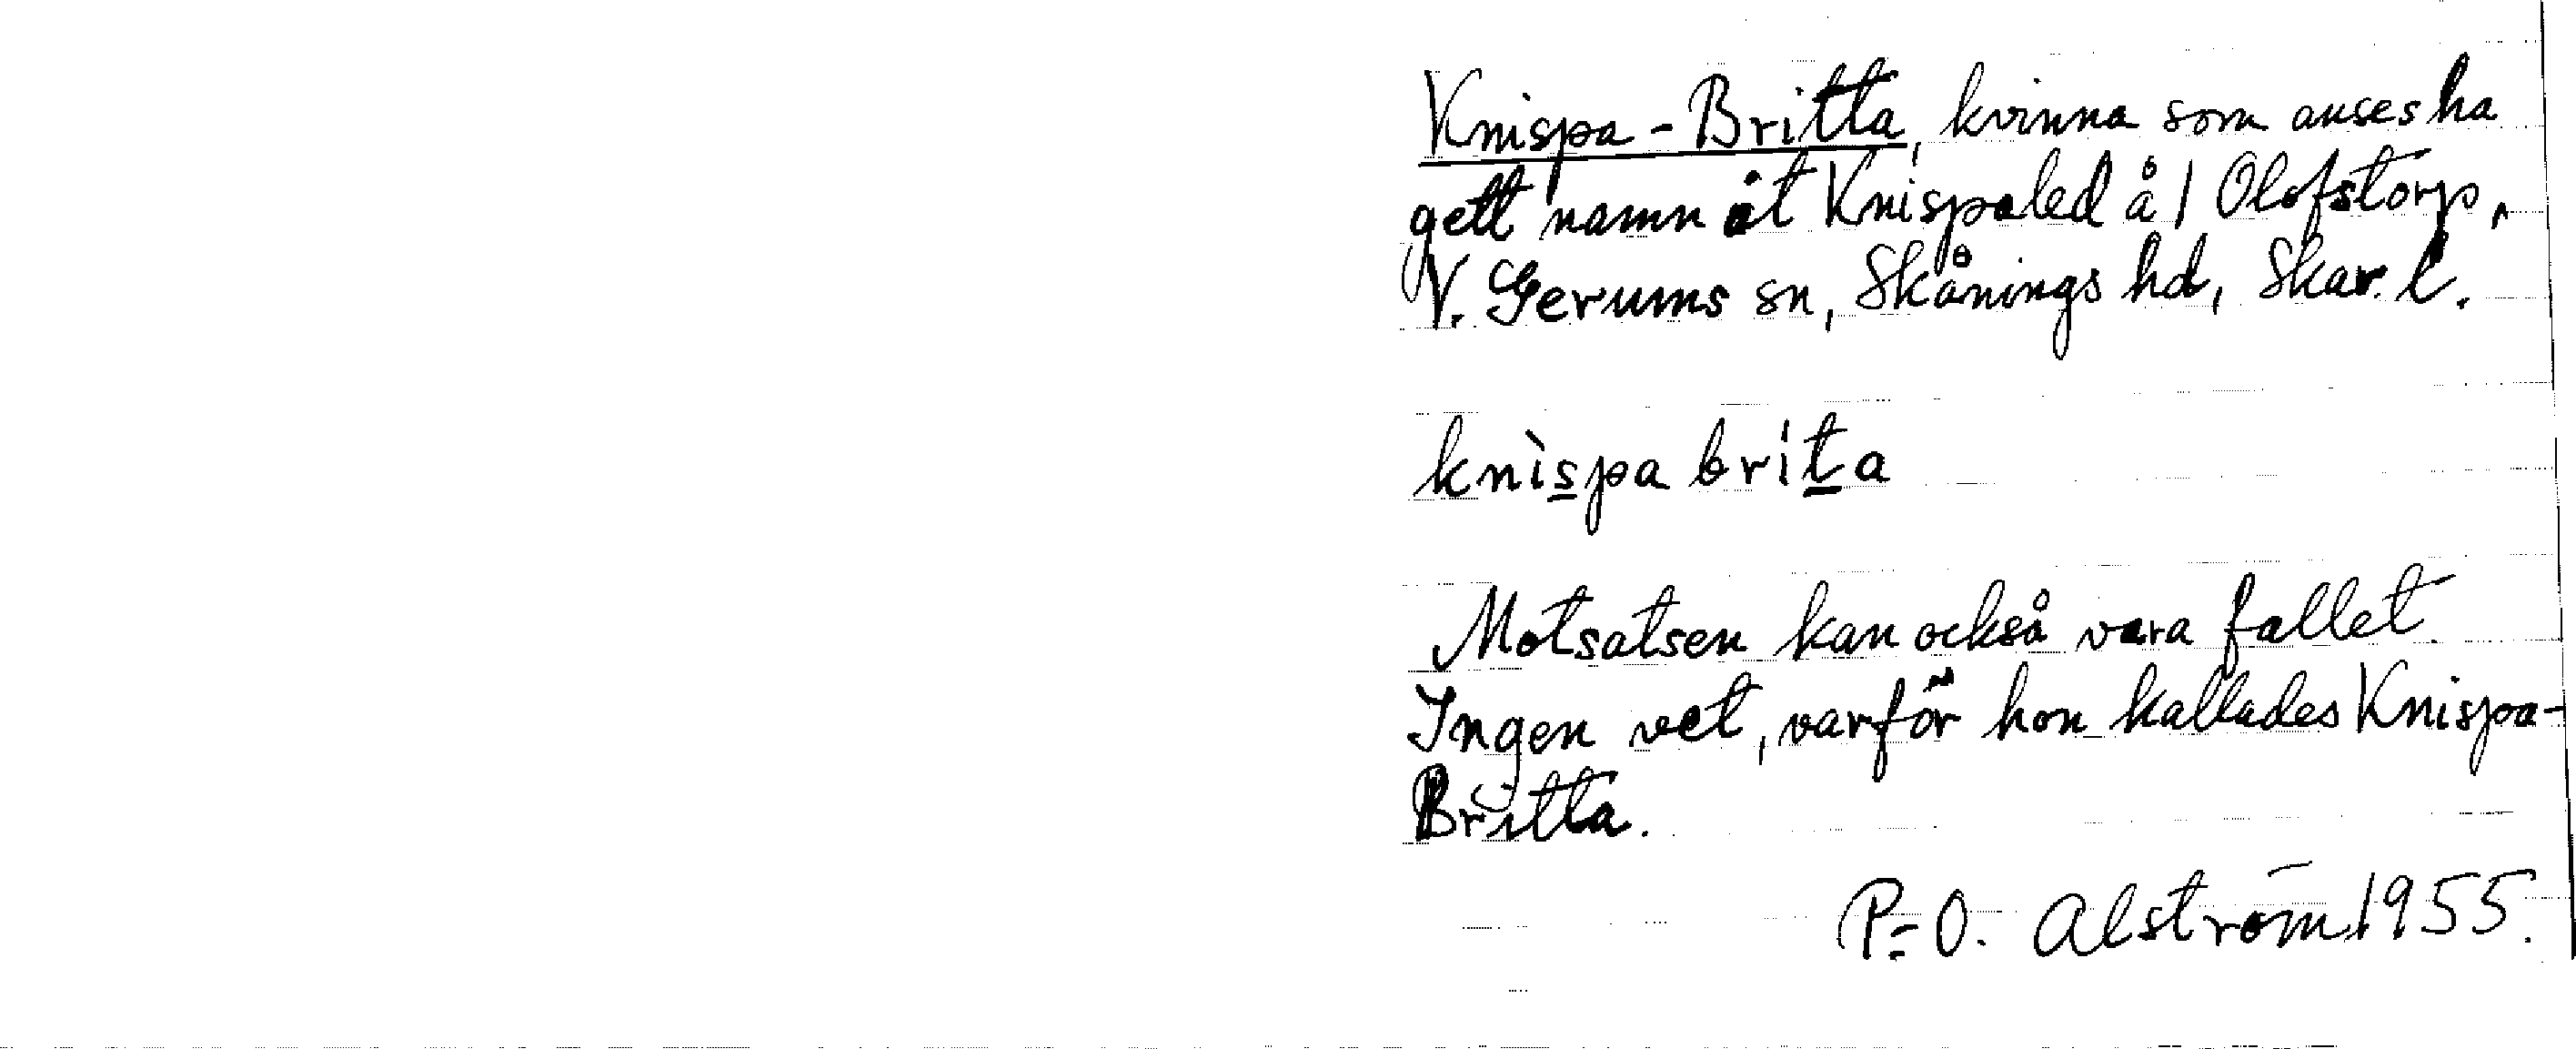 Knispa-Britta, kvinna som anses ha
gett namn åt Knispaled å 1 Olofstorp,
V. Gerums sn, Skånings hd, Skar. l.
knìspa brita
Motsatsen kan också vara fallet.
Ingen vet, varför hon kallades Knispa-
Britta.
P.-O. Alström 1955.